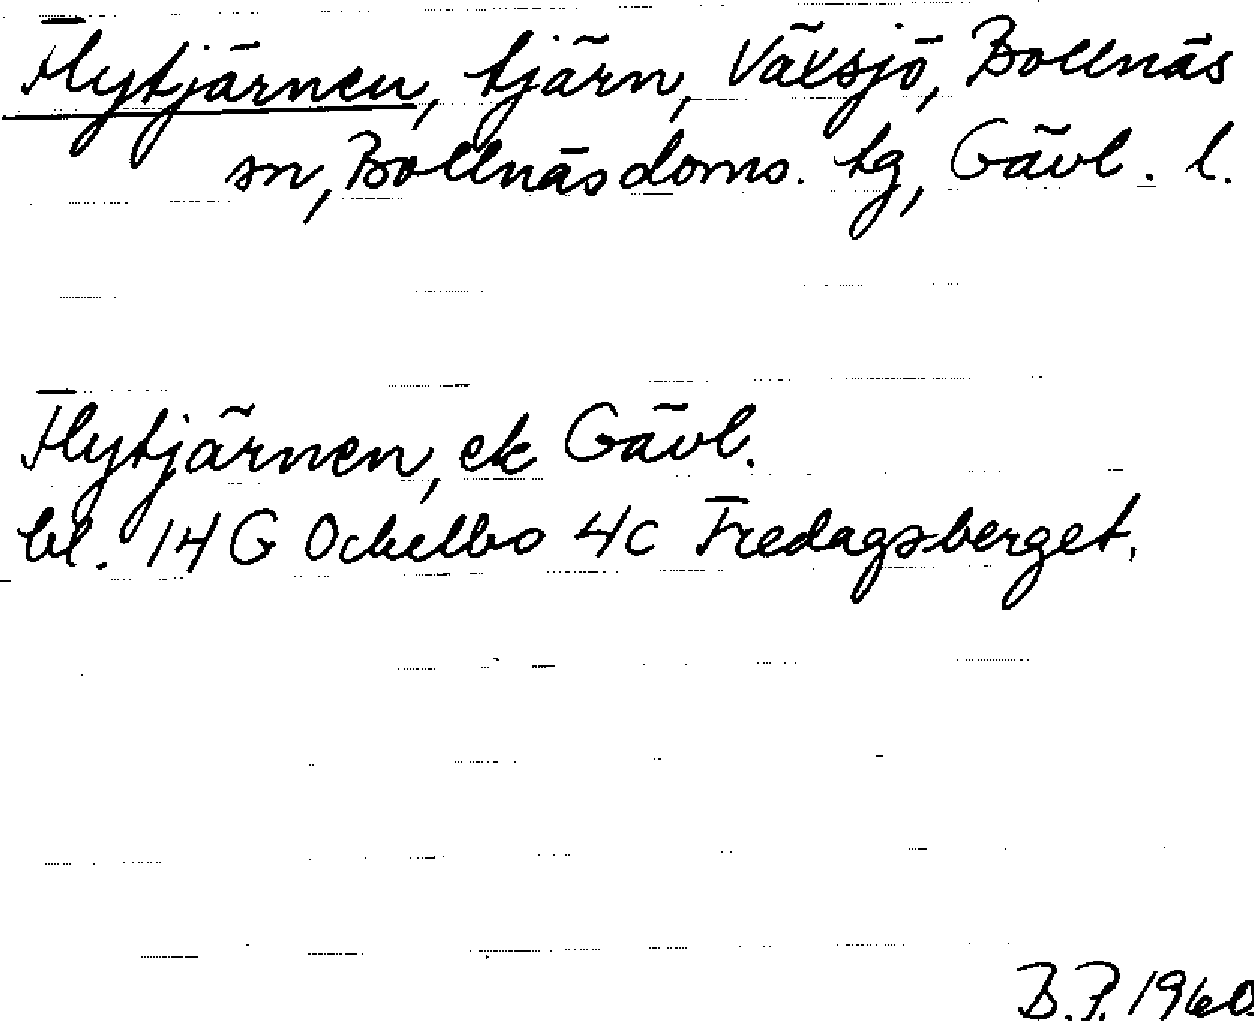 Flytjärnen, tjärn, Växsjö, Bollnäs
sn, Bollnäs doms. tg, Gävl. l.
Flytjärnen, ek Gävl.
bl. 14G Ockelbo 4c Fredagsberget.
B.P. 1960